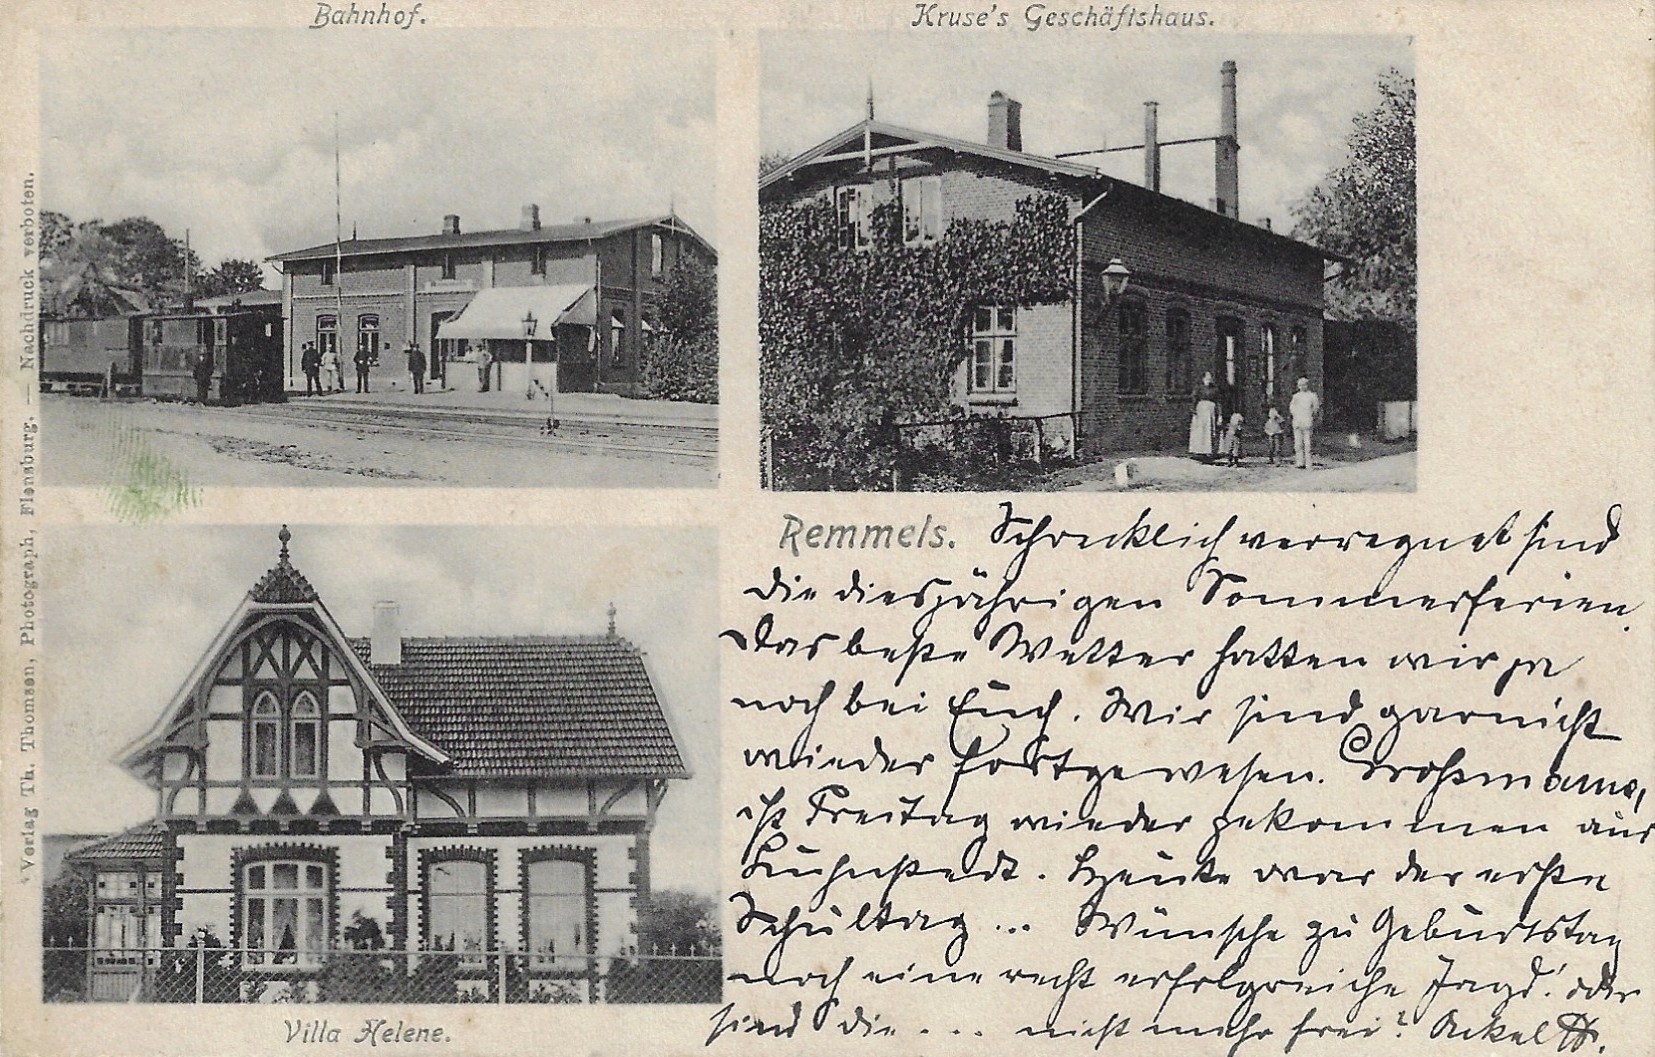 Bahnhof.
Kruse's Geschäftshaus.
Verlag Th. Thomsen, Photograph, Flensburg. — Nachdruck verboten.
Remmels. Schrecklich verregnet sind
die diesjährigen Sommerferien.
Das beste Wetter hatten wir ja
noch bei Euch. Wir sind garnicht
wieder fortgewesen. Grossmama,
ist Freitag wieder gekommen aus
Heute war der erste
Schultag... Wünsche zu Geburtstag
noch eine recht erfolgreiche Jagd! oder
sind die ... nicht mehr frei?
Villa Helene.